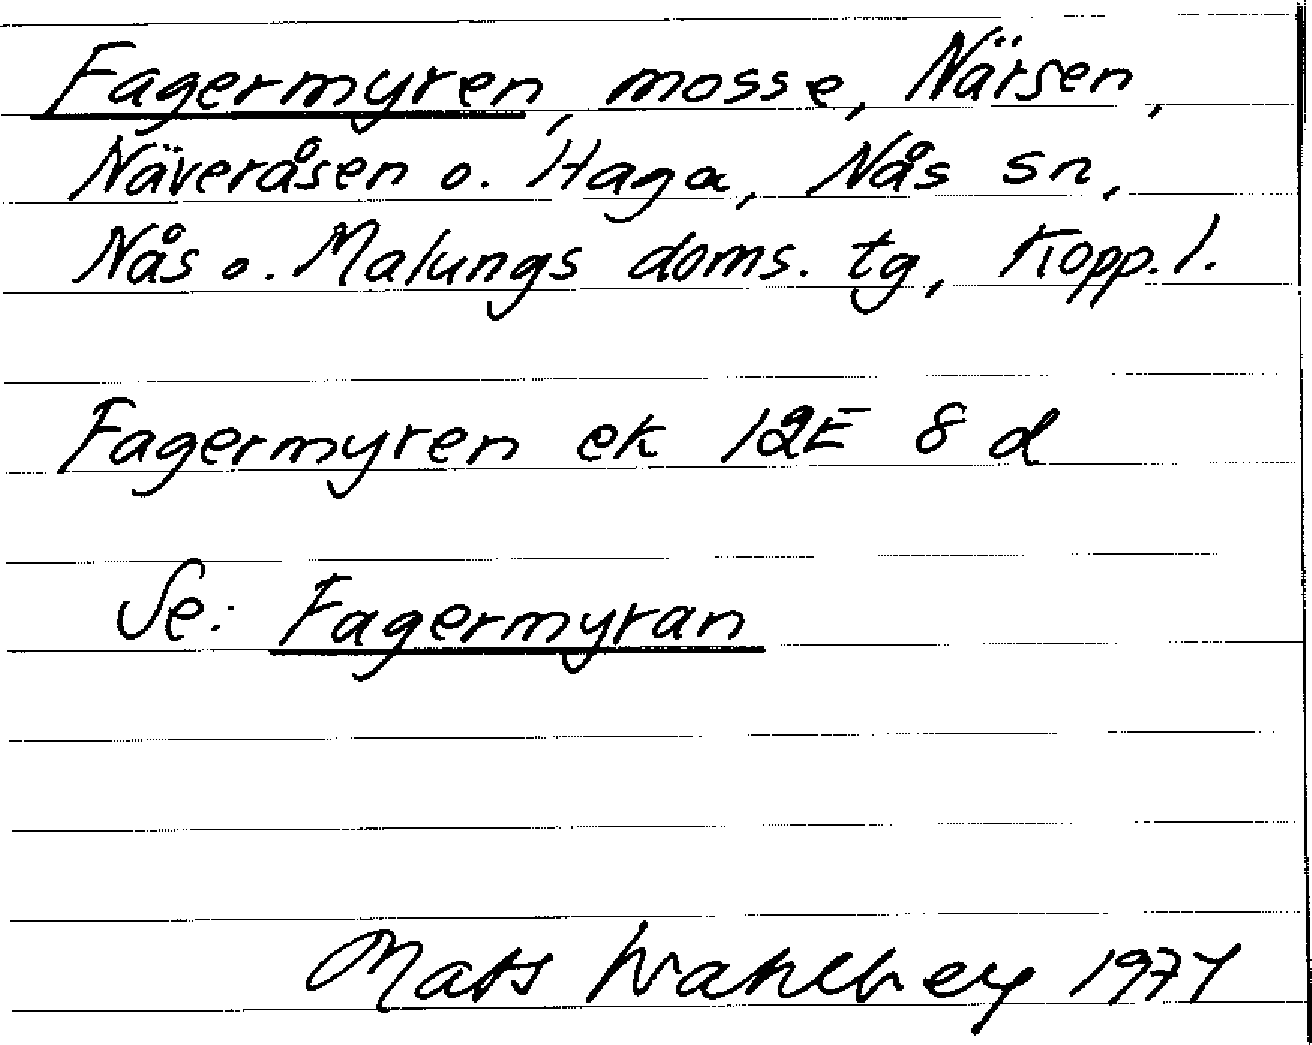 Fagermyren, mosse, Närsen,
Näveråsen o. Haga, Nås sn,
Nås o. Malungs doms. tg, Kopp. l.
Fagermyren ek 12E 8 d
Se: Fagermyran
Mats Wahlberg 1971